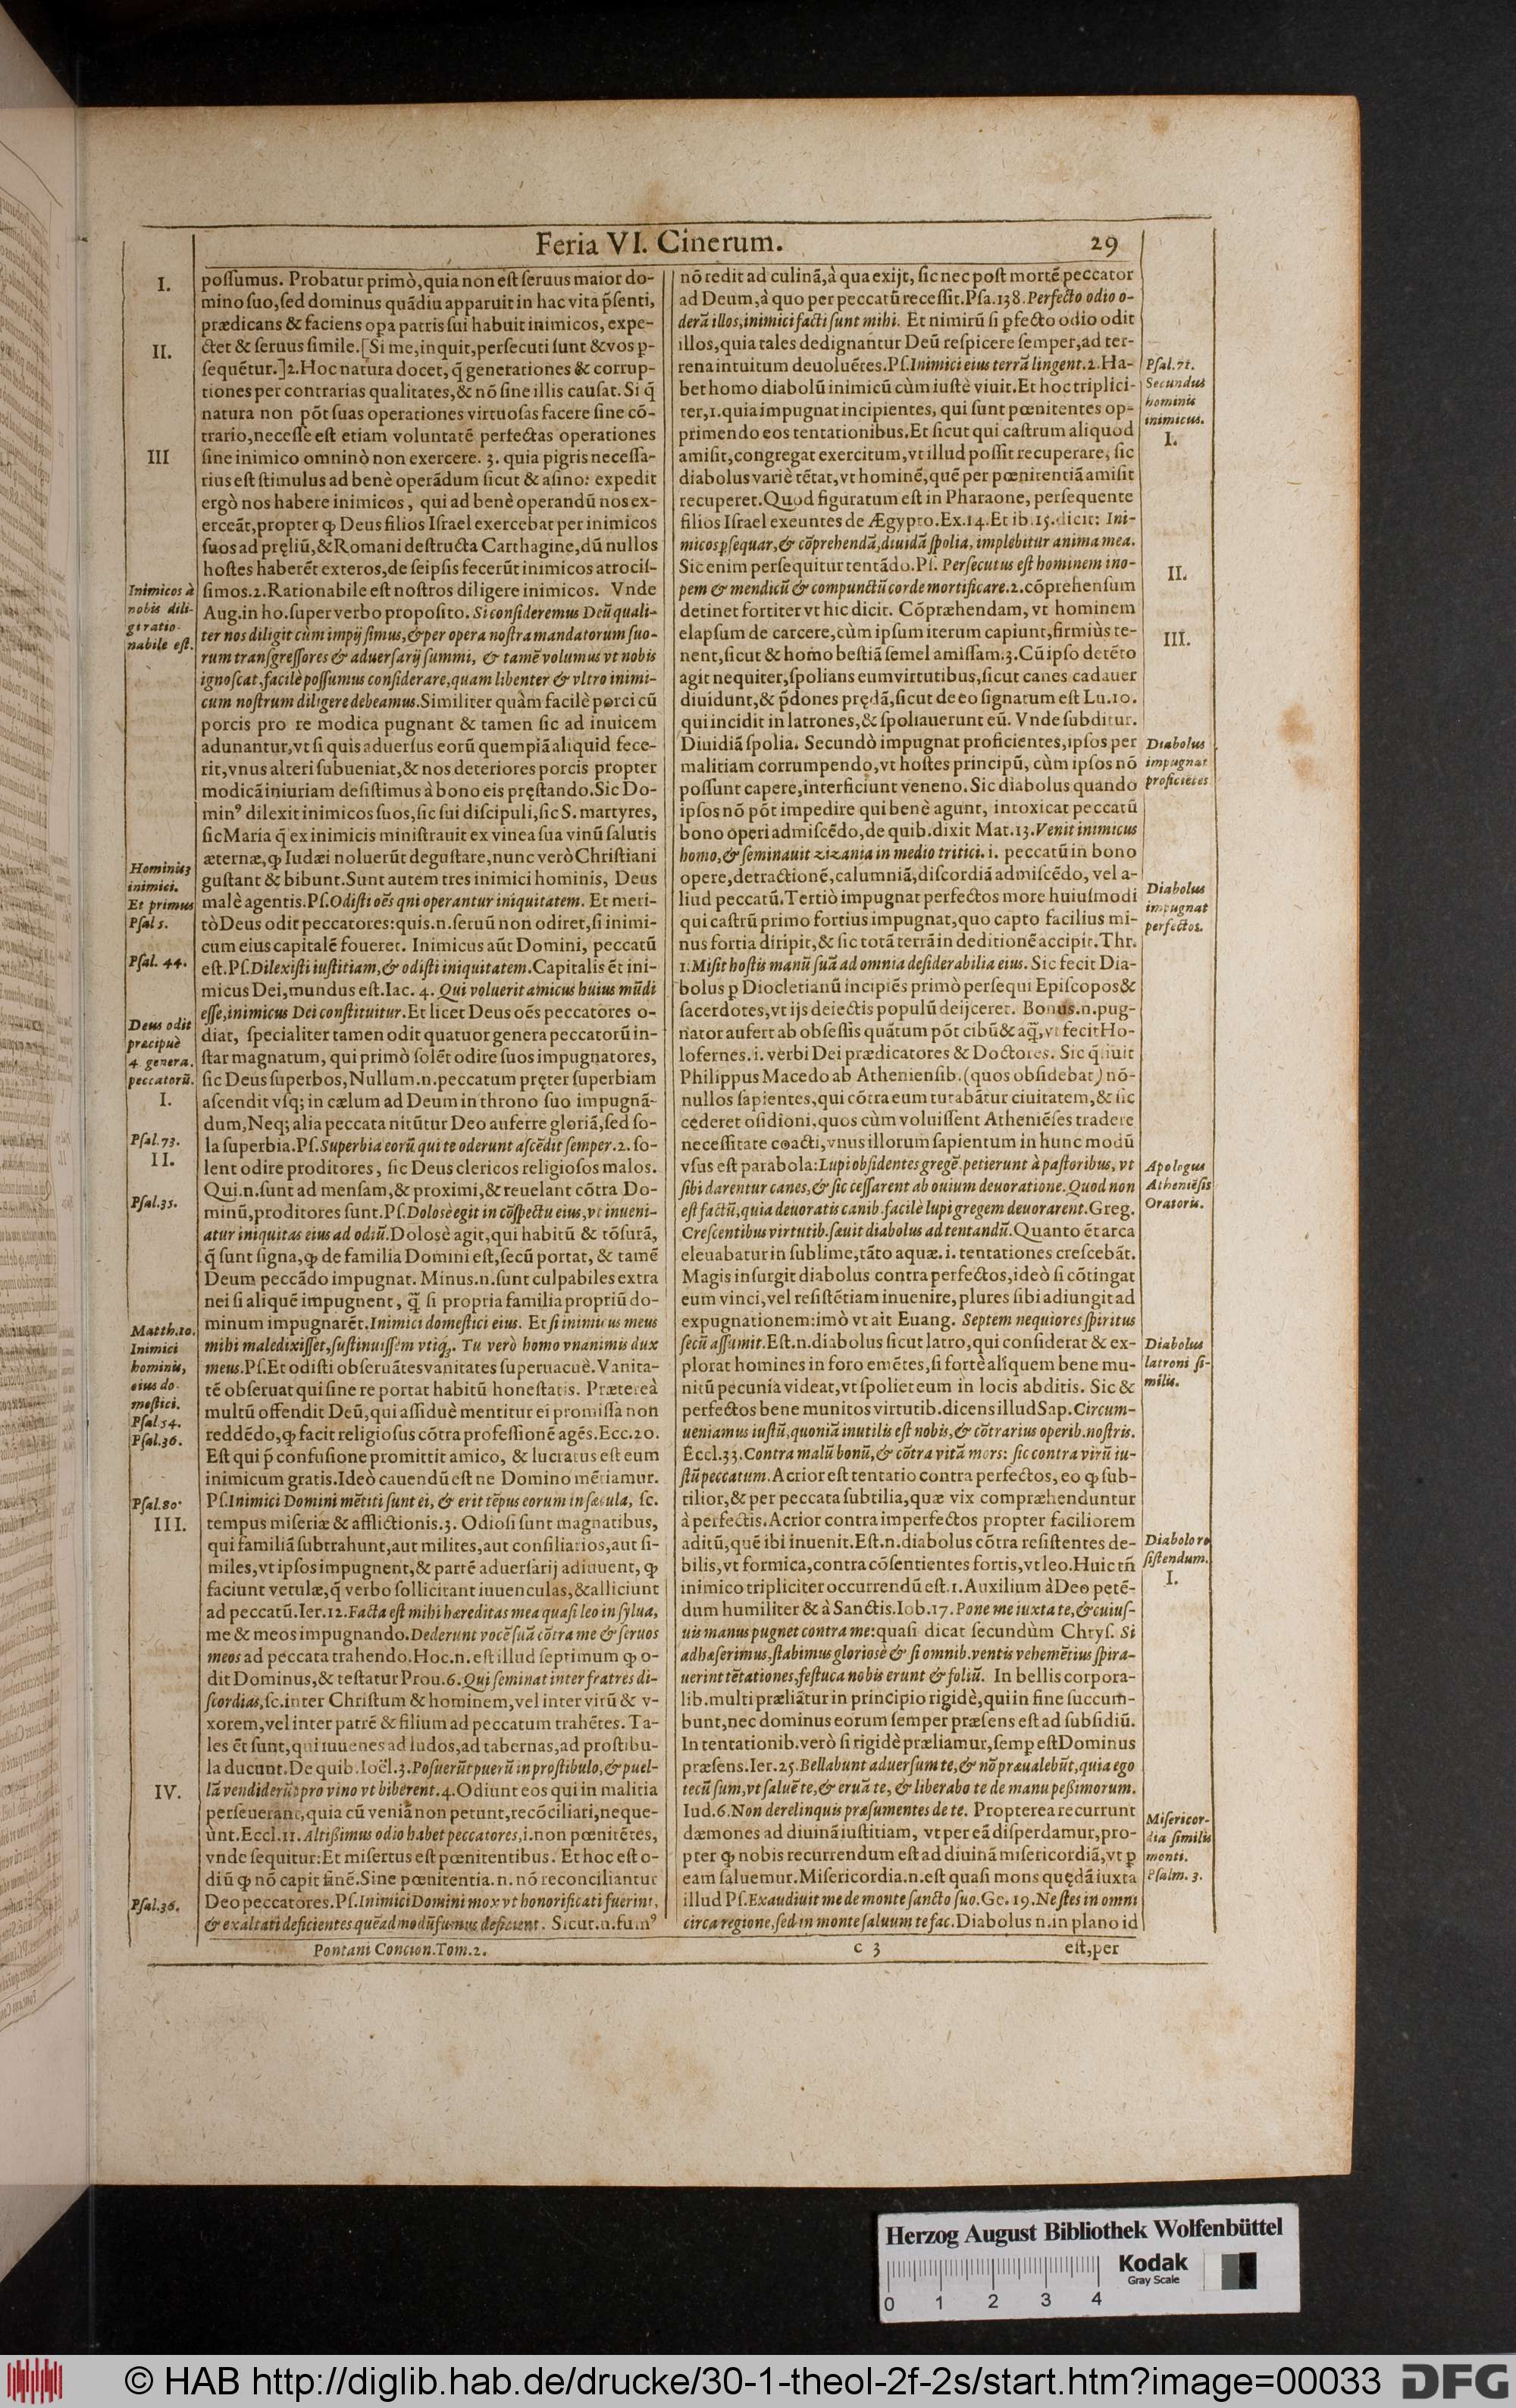 Feria VI. Cinerum. 29
I.
II.
III
Inimicos à
nobis dili-
gi ratio-
nabile est.
Hominis 3
inimici.
Et primus
Psal 5.
Psal. 44.
Deus odit
præcipuè
4 genera.
peccatorũ.
I.
Psal.73.
II.
Psal.35.
Matth.10.
Inimici
hominis,
eius do-
mestici.
Psal 54.
Psal.36.
Psal.80.
III.
IV.
Psal.36.
possumus. Probatur primò, quia non est seruus maior do-
mino suo, sed dominus quãdiu apparuit in hac vita p̃senti,
prædicans & faciens opa patris sui habuit inimicos, expe-
ctet & seruus simile.[Si me, inquit, persecuti sunt & vos ꝑ-
sequẽtur.]2.Hoc natura docet, q̃ generationes & corrup-
tiones per contrarias qualitates, & nõ sine illis causat. Si q̃
natura non põt suas operationes virtuosas facere sine cõ-
trario, necesse est etiam voluntatẽ perfectas operationes
sine inimico omninò non exercere. 3. quia pigris necessa-
rius est stimulus ad benè operãdum sicut & asino: expedit
ergò nos habere inimicos, qui ad benè operandũ nos ex-
erceãt, propter ꝙ Deus filios Israel exercebat per inimicos
suos ad pręliũ, & Romani destructa Carthagine, dũ nullos
hostes haberẽt exteros, de seipsis fecerũt inimicos atrocis-
simos.2.Rationabile est nostros diligere inimicos. Vnde
Aug.in ho.super verbo proposito. Si consideremus Deũ quali-
ter nos diligit cùm impij simus, & per opera nostra mandatorum suo-
rum transgressores & aduersarij summi, & tamẽ volumus vt nobis
ignoscat, facilè possumus considerare, quam libenter & vltro inimi-
cum nostrum diligere debeamus. Similiter quàm facilè porci cũ
porcis pro re modica pugnant & tamen sic ad inuicem
adunantur, vt si quis aduersus eorũ quempiã aliquid fece-
rit, vnus alteri subueniat, & nos deteriores porcis propter
modicã iniuriam desistimus à bono eis pręstando. Sic Do-
minꝰ dilexit inimicos suos, sic sui discipuli, sic S. martyres,
sic Maria q̃ ex inimicis ministrauit ex vinea sua vinũ salutis
æternæ, ꝙ Iudæi noluerũt degustare, nunc verò Christiani
gustant & bibunt. Sunt autem tres inimici hominis, Deus
malè agentis. Ps. Odisti oẽs qui operantur iniquitatem. Et meri-
tò Deus odit peccatores: quis.n.seruũ non odiret, si inimi-
cum eius capitalẽ foueret. Inimicus aũt Domini, peccatũ
est.Ps. Dilexisti iustitiam, & odisti iniquitatem. Capitalis ẽt ini-
micus Dei, mundus est. Iac. 4. Qui voluerit amicus huius mũdi
esse, inimicus Dei constituitur. Et licet Deus oẽs peccatores o-
diat, specialiter tamen odit quatuor genera peccatorũ in-
star magnatum, qui primò solẽt odire suos impugnatores,
sic Deus superbos, Nullum.n.peccatum pręter superbiam
ascendit vsq; in cælum ad Deum in throno suo impugnã-
dum, Neq; alia peccata nitũtur Deo auferre gloriã, sed so-
la superbia.Ps. Superbia eorũ qui te oderunt ascẽdit semper.2. so-
lent odire proditores, sic Deus clericos religiosos malos.
Qui.n.sunt ad mensam, & proximi, & reuelant cõtra Do-
minũ, proditores sunt.Ps. Dolosè egit in cõspectu eius, vt inueni-
atur iniquitas eius ad odiũ. Dolosè agit, qui habitũ & tõsurã,
q̃ sunt signa, ꝙ de familia Domini est, secũ portat, & tamẽ
Deum peccãdo impugnat. Minus.n.sunt culpabiles extra
nei si aliquẽ impugnent, q̃̃ si propria familia propriũ do-
minum impugnarẽt. Inimici domestici eius. Et si inimicus meus
mihi maledixisset, sustinuissem vtiq;. Tu verò homo vnanimis dux
meus.Ps.Et odisti obseruãtes vanitates superuacuè. Vanita-
tẽ obseruat qui sine re portat habitũ honestatis. Prætereà
multũ offendit Deũ, qui assiduè mentitur ei promissa non
reddẽdo, ꝙ facit religiosus cõtra professionẽ agẽs. Ecc.20.
Est qui p̃ confusione promittit amico, & lucratus est eum
inimicum gratis. Ideò cauendũ est ne Domino mẽtiamur.
Ps. Inimici Domini mẽtiti sunt ei, & erit tẽpus eorum in sæcula, sc.
tempus miseriæ & afflictionis.3. Odiosi sunt magnatibus,
qui familiã subtrahunt, aut milites, aut consiliarios, aut si-
miles, vt ipsos impugnent, & partẽ aduersarij adiuuent, ꝙ
faciunt vetulæ, q̃ verbo sollicitant iuuenculas, & alliciunt
ad peccatũ. Ier.12. Facta est mihi hæreditas mea quasi leo in sylua,
me & meos impugnando. Dederunt vocẽ suã cõtra me & seruos
meos ad peccata trahendo. Hoc.n.est illud septimum ꝙ o-
dit Dominus, & testatur Prou.6. Qui seminat inter fratres di-
scordias, sc.inter Christum & hominem, vel inter virũ & v-
xorem, vel inter patrẽ & filium ad peccatum trahẽtes. Ta-
les ẽt sunt, qui iuuenes ad ludos, ad tabernas, ad prostibu-
la ducunt. De quib.Ioël.3. Posuerũt puerũ in prostibulo, & puel-
lã vendiderũt pro vino vt biberent.4.Odiunt eos qui in malitia
perseuerant, quia cũ veniã non petunt, recõciliari, neque-
ùnt.Eccl.11. Altißimus odio habet peccatores, i.non pœnitẽtes,
vnde sequitur: Et misertus est pœnitentibus. Et hoc est o-
diũ ꝙ nõ capit finẽ. Sine pœnitentia.n.nõ reconciliantur
Deo peccatores.Ps. Inimici Domini mox vt honorificati fuerint,
& exaltati deficientes quẽadmodũ fumus deficient. Sicut.n.fumꝰ
nõ redit ad culinã, à qua exijt, sic nec post mortẽ peccator
ad Deum, à quo per peccatũ recessit. Psa.138. Perfecto odio o-
derã illos, inimici facti sunt mihi. Et nimirũ si ꝑfecto odio odit
illos, quia tales dedignantur Deũ respicere semper, ad ter-
rena intuitum deuoluẽtes.Ps. Inimici eius terrã lingent.2.Ha-
bet homo diabolũ inimicũ cùm iustè viuit. Et hoc triplici-
ter, 1.quia impugnat incipientes, qui sunt pœnitentes op-
primendo eos tentationibus. Et sicut qui castrum aliquod
amisit, congregat exercitum, vt illud possit recuperare, sic
diabolus variè tẽtat, vt hominẽ, quẽ per pœnitentiã amisit
recuperet. Quod figuratum est in Pharaone, persequente
filios Israel exeuntes de Ægypto. Ex.14.Et ib.15.dicit: Ini-
micos ꝑsequar, & cõprehendã, diuidã spolia, implebitur anima mea.
Sic enim persequitur tentãdo.Ps. Persecutus est hominem ino-
pem & mendicũ & compunctũ corde mortificare.2.cõprehensum
detinet fortiter vt hic dicit. Cõpræhendam, vt hominem
elapsum de carcere, cùm ipsum iterum capiunt, firmiùs te-
nent, sicut & homo bestiã semel amissam.3.Cũ ipso detẽto
agit nequiter, spolians eum virtutibus, sicut canes cadauer
diuidunt, & p̃dones prędã, sicut de eo signatum est Lu.10.
qui incidit in latrones, & spoliauerunt eũ. Vnde subditur.
Diuidiã spolia. Secundò impugnat proficientes, ipsos per
malitiam corrumpendo, vt hostes principũ, cùm ipsos nõ
possunt capere, interficiunt veneno. Sic diabolus quando
ipsos nõ põt impedire qui benè agunt, intoxicat peccatũ
bono operi admiscẽdo, de quib.dixit Mat.13. Venit inimicus
homo, & seminauit zizania in medio tritici. i. peccatũ in bono
opere, detractionẽ, calumniã, discordiã admiscẽdo, vel a-
liud peccatũ. Tertiò impugnat perfectos more huiusmodi
qui castrũ primo fortius impugnat, quo capto facilius mi-
nus fortia diripit, & sic totã terrã in deditionẽ accipit. Thr.
1. Misit hostis manũ suã ad omnia desiderabilia eius. Sic fecit Dia-
bolus ꝑ Diocletianũ incipiẽs primò persequi Episcopos &
sacerdotes, vt ijs deiectis populũ deijceret. Bonus.n.pug-
nator aufert ab obsessis quãtum põt cibũ & aq̃, vt fecit Ho-
lofernes.i.verbi Dei prædicatores & Doctores. Sic q̃siuit
Philippus Macedo ab Atheniensib.(quos obsidebat) nõ-
nullos sapientes, qui cõtra eum tutabãtur ciuitatem, & sic
cederet osidioni, quos cùm voluissent Atheniẽses tradere
necessitate coacti, vnus illorum sapientum in hunc modũ
vsus est parabola: Lupi obsidentes gregẽ petierunt à pastoribus, vt
sibi darentur canes, & sic cessarent ab ouium deuoratione. Quod non
est factũ, quia deuoratis canib.facilè lupi gregem deuorarent. Greg.
Crescentibus virtutib.sæuit diabolus ad tentandũ. Quanto ẽt arca
eleuabatur in sublime, tãto aquæ.i.tentationes crescebãt.
Magis insurgit diabolus contra perfectos, ideò si cõtingat
eum vinci, vel resistẽtiam inuenire, plures sibi adiungit ad
expugnationem: imò vt ait Euang. Septem nequiores spiritus
secũ assumit. Est.n.diabolus sicut latro, qui considerat & ex-
plorat homines in foro emẽtes, si fortè aliquem bene mu-
nitũ pecunia videat, vt spoliet eum in locis abditis. Sic &
perfectos bene munitos virtutib.dicens illud Sap. Circum-
ueniamus iustũ, quoniã inutilis est nobis, & cõtrarius operib.nostris.
Eccl.33. Contra malũ bonũ, & cõtra vitã mors: sic contra virũ iu-
stũ peccatum. Acrior est tentatio contra perfectos, eo ꝙ sub-
tilior, & per peccata subtilia, quæ vix compræhenduntur
à perfectis. Acrior contra imperfectos propter faciliorem
aditũ, quẽ ibi inuenit. Est.n.diabolus cõtra resistentes de-
bilis, vt formica, contra cõsentientes fortis, vt leo. Huic tñ
inimico tripliciter occurrendũ est.1.Auxilium à Deo petẽ-
dum humiliter & à Sanctis. Iob.17. Pone me iuxta te, & cuius-
uis manus pugnet contra me: quasi dicat secundùm Chrys. Si
adhæserimus, stabimus gloriosè & si omnib.ventis vehemẽtius spira-
uerint tẽtationes, festuca nobis erunt & foliũ. In bellis corpora-
lib.multi præliãtur in principio rigidè, qui in fine succum-
bunt, nec dominus eorum semper præsens est ad subsidiũ.
In tentationib.verò si rigidè præliamur, semꝑ est Dominus
præsens. Ier.25. Bellabunt aduersum te, & nõ præualebũt, quia ego
tecũ sum, vt saluẽ te, & eruã te, & liberabo te de manu peßimorum.
Iud.6. Non derelinquis præsumentes de te. Propterea recurrunt
dæmones ad diuinã iustitiam, vt per eã disperdamur, pro-
pter ꝙ nobis recurrendum est ad diuinã misericordiã, vt ꝑ
eam saluemur. Misericordia.n.est quasi mons quędã iuxta
illud Ps. Exaudiuit me de monte sancto suo. Ge.19. Ne stes in omni
circa regione, sed in monte saluum te fac. Diabolus n.in plano id
Psal.71.
Secundus
hominis
inimicus.
I.
II.
III.
Diabolus
impugnat
proficiẽtes
Diabolus
impugnat
perfectos.
Apologus
Atheniẽsis
Oratoris.
Diabolus
latroni si-
milis.
Diabolo re
sistendum.
I.
Misericor-
dia similis
monti.
Psalm. 3.
Pontani Concion.Tom.2. c 3 est, per
Herzog August Bibliothek Wolfenbüttel
Kodak
Gray Scale
0 1 2 3 4
© HAB http://diglib.hab.de/drucke/30-1-theol-2f-2s/start.htm?image=00033 DFG